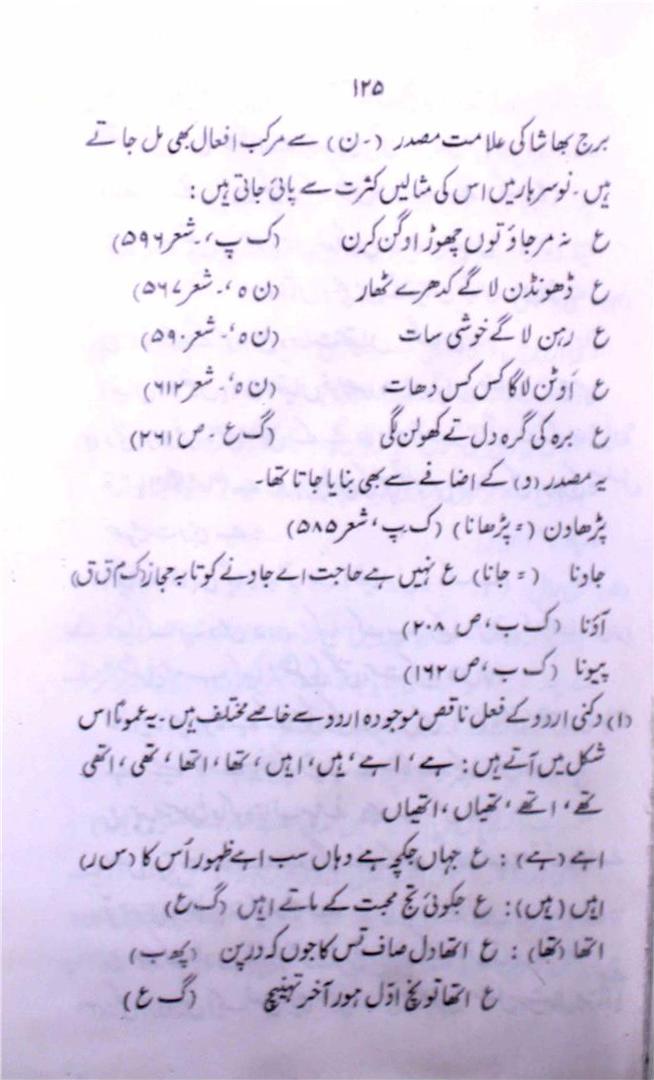 ۱۲۵
برج بھاشا کی علامت مصدر (-ن) سے مرکب افعال بھی مل جاتے
ہیں۔ نوسرہار میں اس کی مثالیں کثرت سے پائی جاتی ہیں:
ع نہ مر جاؤ توں چھوڑ اوگن کرن (ک پ، شعر ۵۹۶)
ع ڈھونڈن لاگے کدھرے ٹھار (ن ہ، شعر ۵۶۷)
ع رہن لاگے خوشی سات (ن ہ، شعر ۵۹۰)
ع اَوٹن لاگا کس کس دھات (ن ہ، شعر ۶۱۲)
ع برہ کی گرہ دل تے کھولن لگی (گ ع، ص ۲۶۱)
یہ مصدر (و) کے اضافے سے بھی بنایا جاتا تھا۔
پڑھاون (= پڑھانا) (ک پ، شعر ۵۸۵)
جاونا (= جانا) ع نہیں ہے حاجت اے جاونے کو تا بہ حجاز (ک م ق ق)
آؤنا (ک ب، ص ۲۰۸)
پیونا (ک ب، ص ۱۶۲)
(۱) دکنی اردو کے فعل ناقص موجودہ اردو سے خاصے مختلف ہیں۔ یہ عموماً اس
شکل میں آتے ہیں: ہے، اہے، ہیں، اہیں، تھا، اتھا، تھی، اتھی
تھے، اتھے، تھیاں، اتھیاں
اہے (ہے): ع جہاں جکچہ ہے وہاں سب اہے ظہور اُس کا (س ر)
اہیں (ہیں): ع جکوئی تج محبت کے ماتے اہیں (گ ع)
اتھا (تھا): ع اتھا دل صاف تس کا جوں کہ درپن (پھ ب)
ع اتھا توںچ اوّل ہور آخر تہنیچ (گ ع)